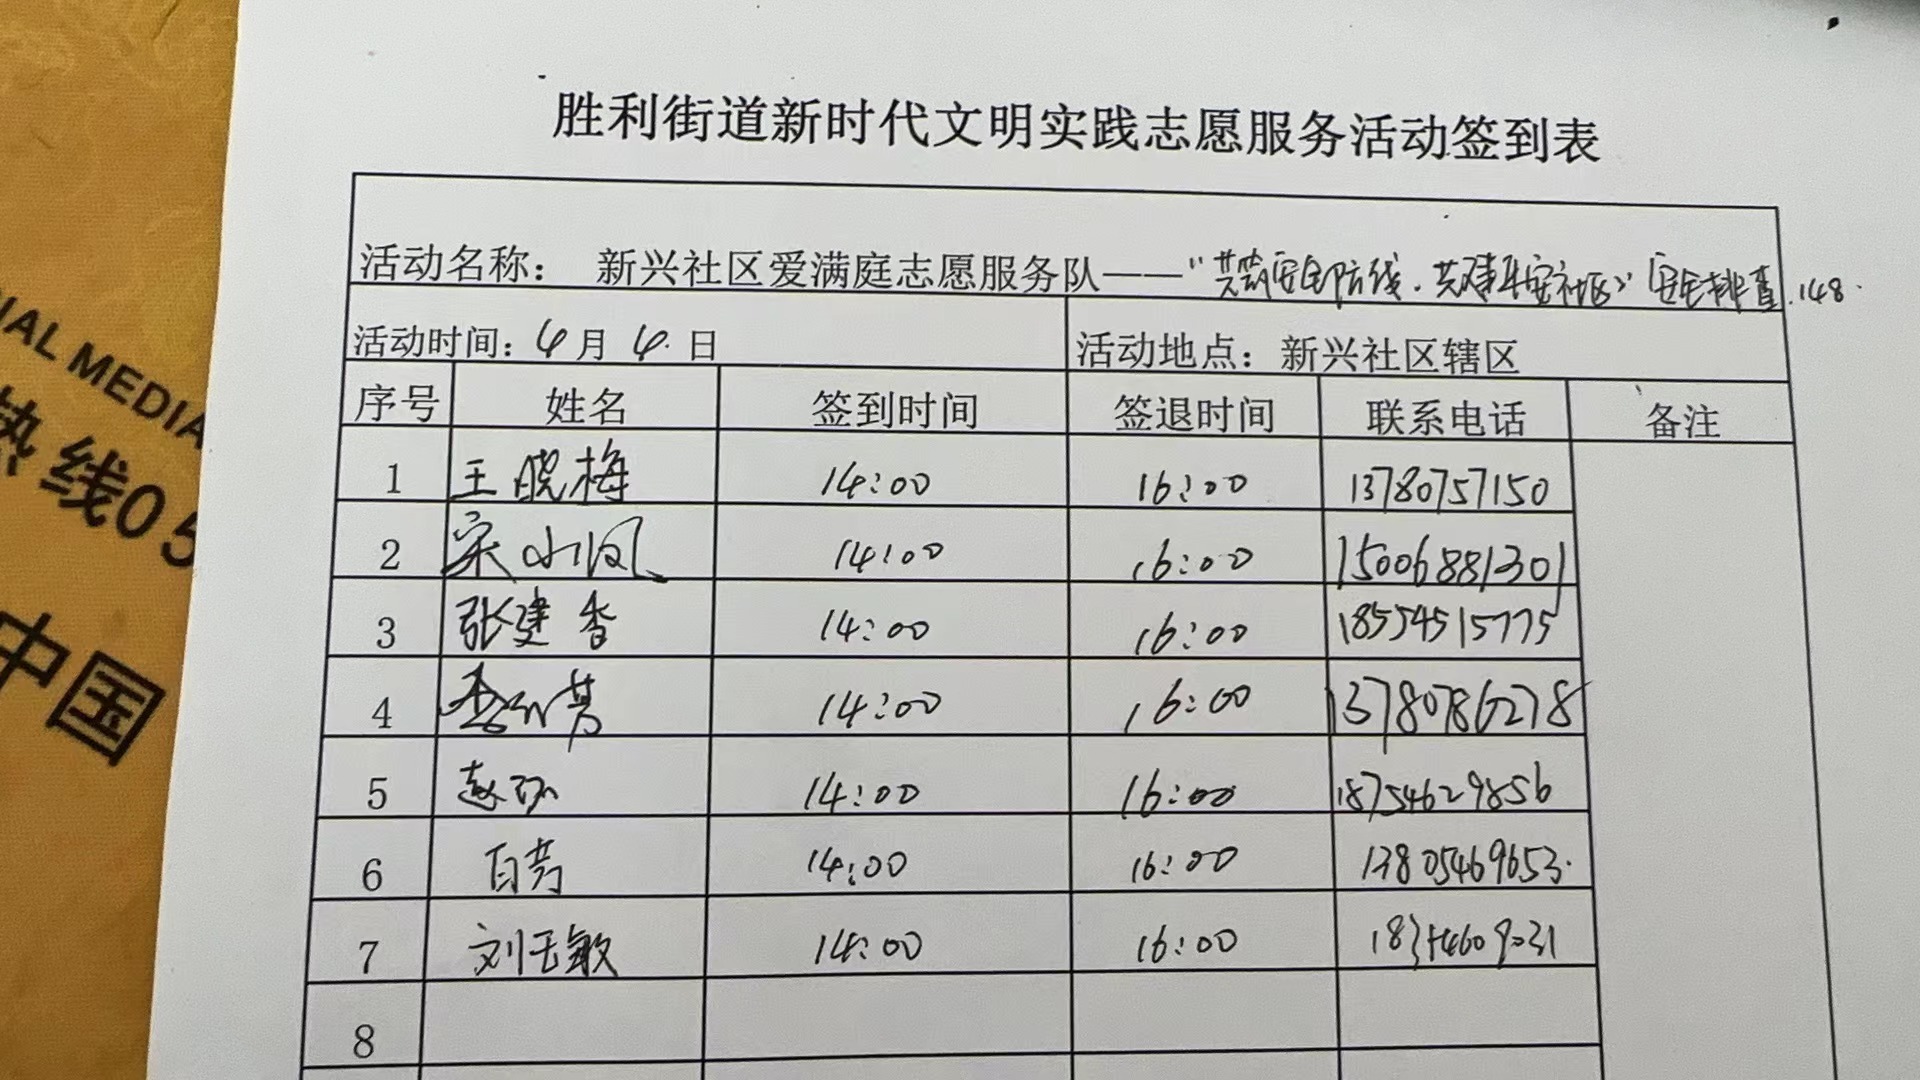 胜利街道新时代文明实践志愿服务活动签到表
活动名称： 新兴社区爱满庭志愿服务队——“共筑安全防线.共建平安社区”安全排查.148.
活动时间：4月4日 活动地点：新兴社区辖区
序号 姓名 签到时间 签退时间 联系电话 备注
1 王晓梅 14:00 16:00 13780757150
2 宋小凤 14:00 16:00 15006881301
3 张建香 14:00 16:00 18554515775
4 14:00 16:00 13780786278
5 赵环 14:00 16:00 18754629856
6 白芳 14:00 16:00 13805469653.
7 刘玉敏 14:00 16:00
8
IAL MEDIA
热线05
中国